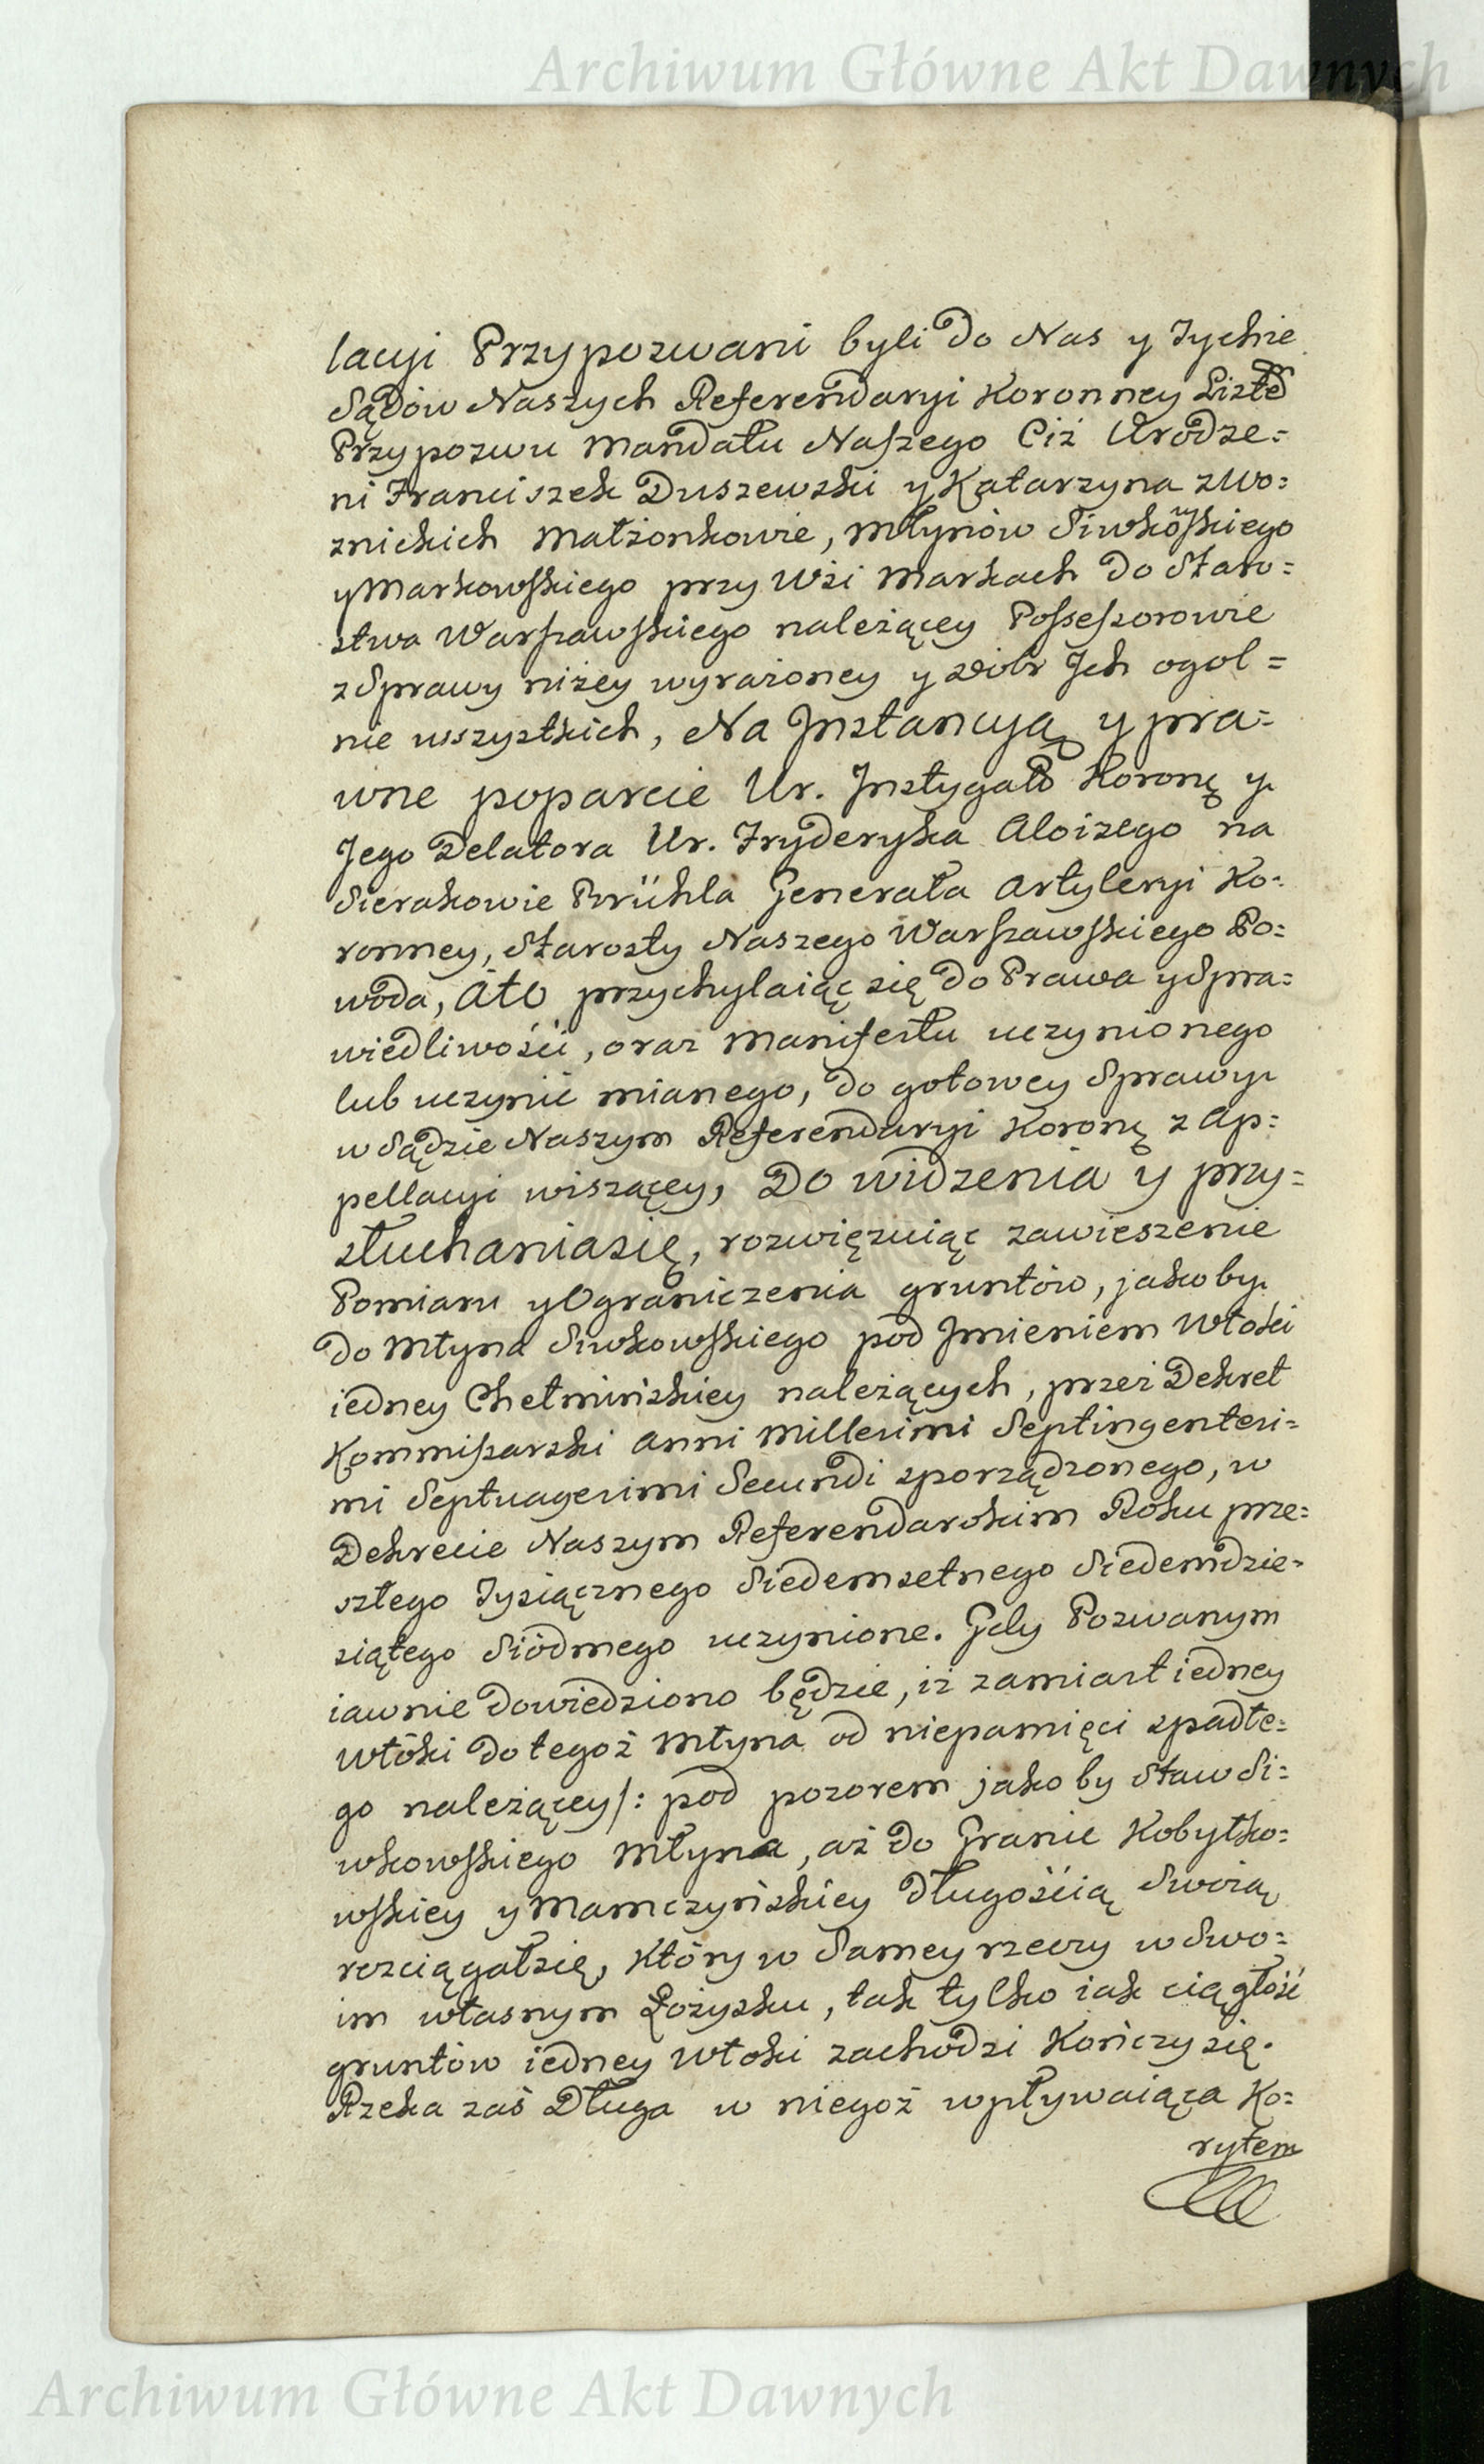 Archiwum Główne Akt Dawnych
lacyi Przypozwani byli do Nas y Tychże
Sądów Naszych Referendaryi Koronney Listē
Przypozwu Mandatu Naszego Ciż Urodze=
ni Franciszek Duszewski y Katarzyna z Wo=
znickich Małżonkowie, Młynów Siwkowskiego
y Markowskiego przy Wsi Markach do Staro=
stwa Warszawskiego należącey Possessorowie
z Sprawy niżey wyrażoney y Dóbr Jch ogol=
nie wszystkich, Na Jnstancyą y pra=
wne poparcie Ur. Jnstygato Koronę y
Jego Delatora Ur. Fryderyka Aloizego na
Sierakowie Brühla Generała Artyleryi Ko=
ronney, Starosty Naszego Warszawskiego Po=
woda, Ato przychylaiąc się do Prawa y Spra=
wiedliwości, oraz Manifestu uczynionego
lub uczynić mianego, do gotowey Sprawy
w Sądzie Naszym Referendaryi Koronę z Ap=
pellacyi wiszącey, Do widzenia y przy=
słuchania się, rozwięzuiąc zawieszenie
Pomiaru y Ograniczenia gruntów, jakoby
do Młyna Siwkowskiego pod Jmieniem Włoki
iedney Chełmińskiey należących, przez Dekret
Kommissarski Anni Millesimi Septingentesi=
mi Septuagesimi Secundi sporządzonego, w
Dekrecie Naszym Referendarskim Roku prze=
szłego Tysiącznego Siedemsetnego Siedemdzie=
siątego Siódmego uczynione. Gdy Pozwanym
iawnie dowiedziono będzie, iż zamiast iedney
Włóki do tegoż Młyna od niepamięci spadłe=
go należącey/: pod pozorem jakoby Staw Si=
wkowskiego Młyna, aż do Granic Kobyłko=
wskiey y Mamczyńskiey długością Swoią
rozciągał się, Który w Samey rzeczy w Swo=
im własnym Łożysku, tak tylko iak ciągłość
gruntów iedney Włoki zachodzi Kończy się.
Rzeka zaś Długa w niegoż wpływaiąca Ko=
rytem
Archiwum Główne Akt Dawnych